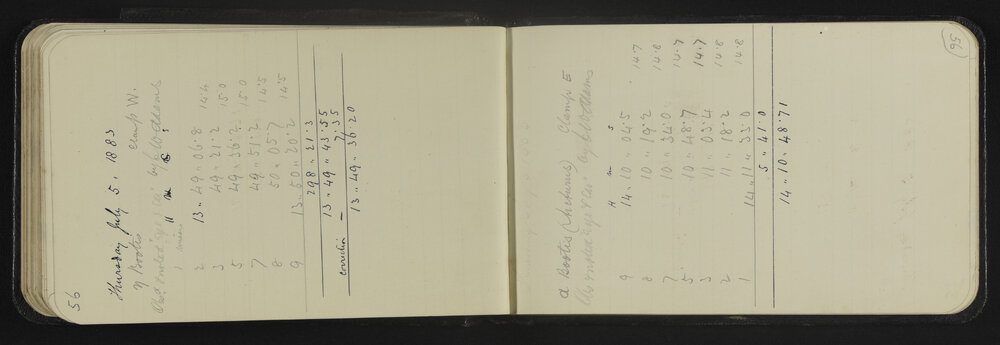 56
Thursday July 5, 1883
η Bootis Clamp W.
Obs. noted eye & ear by C W Adams
1
2 13 „ 49 „ 06.8 14.4
3 49 „ 21.2 15.0
5 49 „ 36.2 15.0
7 49 „ 51.2 14.5
8 50 „ 05.7 14.5
9 13 „ 50 „ 20.2
298 „ 21.3
13 „ 49 „ 43.55
correction – 7.35
13 „ 49 „ 36.20
56
α Bootis (Arcturus) Clamp E
Obs noted eye & ear by C W Adams
H m s
9 14 „ 10 „ 04.5 14.7
8 10 „ 19.2 14.8
7 10 „ 34.0 14.7
5 10 „ 48.7 14.7
3 11 „ 03.4 14.8
2 11 „ 18.2 14.8
1 14 „ 11 „ 33.0
5 „ 41.0
14 „ 10 „ 48.71